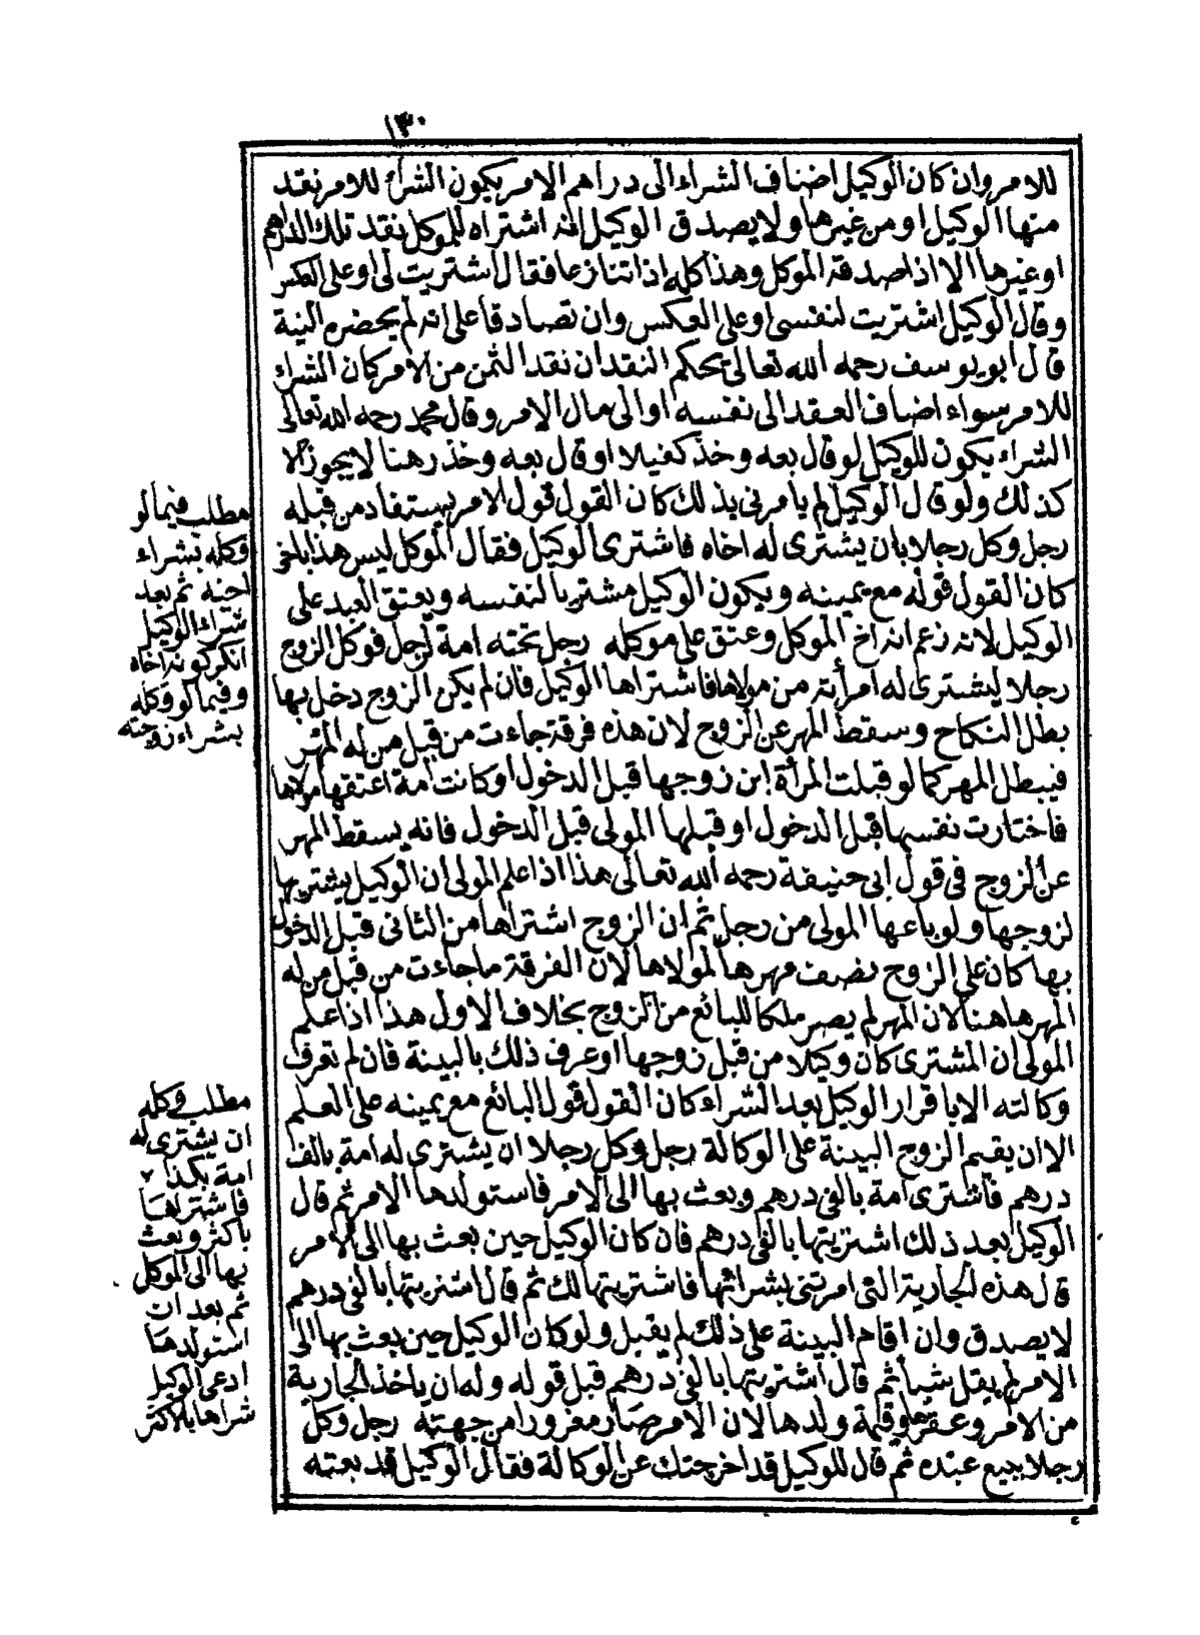 ١٣٠
للامر وان كان الوكيل اضاف الشراء الى دراهم الامر يكون الشراء للامر نقد
منها الوكيل او من غيرها ولا يصدق الوكيل انه اشتراه للموكل نقد تلك الدراهم
او غيرها الا اذا صدقه الموكل وهذا كله اذا تنازعا فقال اشتريت لى او على العكس
وقال الوكيل اشتريت لنفسى او على العكس وان تصادقا على انه لم يحضره النية
قال ابو يوسف رحمه الله تعالى يحكم النقد ان نقد الثمن من الامر كان الشراء
للامر سواء اضاف العقد الى نفسه او الى مال الامر وقال محمد رحمه الله تعالى
الشراء يكون للوكيل لو قال بعه وخذ كفيلا او قال بعه وخذ رهنا لا يجوز الا
كذلك ولو قال الوكيل لم يامرنى بذلك كان القول قول الامر يستفاد من قبله
رجل وكل رجلا بان يشترى له اخاه فاشترى الوكيل فقال الموكل ليس هذا باخى
كان القول قوله مع يمينه ويكون الوكيل مشتريا لنفسه ويعتق العبد على
الوكيل لانه زعم انه اخ الموكل وعتق على موكله رجل تحته امة لرجل فوكل الزوج
رجلا ليشترى له امرأته من مولاها فاشتراها الوكيل فان لم يكن الزوج دخل بها
بطل النكاح وسقط المهر عن الزوج لان هذه فرقة جاءت من قبل من له المهر
فيبطل المهر كما لو قبلت المرأة ابن زوجها قبل الدخول او كانت امة اعتقها مولاها
فاختارت نفسها قبل الدخول او قبلها المولى قبل الدخول فانه يسقط المهر
عن الزوج فى قول ابى حنيفة رحمه الله تعالى هذا اذا علم المولى ان الوكيل يشتريها
لزوجها ولو باعها المولى من رجل ثم ان الزوج اشتراها من الثانى قبل الدخول
بها كان على الزوج نصف مهرها لمولاها لان الفرقة ما جاءت من قبل من له
المهر هاهنا لان المهر لم يصر ملكا للبائع من الزوج بخلاف الاول هذا اذا علم
المولى ان المشترى كان وكيلا من قبل زوجها او عرف ذلك بالبينة فان لم تعرف
وكالته الا باقرار الوكيل بعد الشراء كان القول قول البائع مع يمينه على العلم
الا ان يقيم الزوج البينة على الوكالة رجل وكل رجلا ان يشترى له امة بالف
درهم فاشترى امة بالفى درهم وبعث بها الى الامر فاستولدها الامر ثم قال
الوكيل بعد ذلك اشتريتها بالفى درهم فان كان الوكيل حين بعث بها الى الامر
قال هذه الجارية التى امرتنى بشرائها فاشتريتها لك ثم قال اشتريتها بالفى درهم
لا يصدق وان اقام البينة على ذلك لم يقبل ولو كان الوكيل حين بعث بها الى
الامر لم يقل شيأ ثم قال اشتريتها بالفى درهم قبل قوله وله ان ياخذ الجارية
من الامر وعقرها وقيمة ولدها لان الامر صار مغرورا من جهته رجل وكل
رجلا ببيع عبده ثم قال للوكيل قد اخرجتك عن الوكالة فقال الوكيل قد بعته
مطلب فيما لو
وكله بشراء
اخيه ثم بعد
شراء الوكيل
انكر كونه اخاه
وفيما لو وكله
بشراء زوجته
مطلب وكله
ان يشترى له
امة بكذا
فاشتراها
باكثر وبعث
بها الى الموكل
ثم بعد ان
استولدها
ادعى الوكيل
شراها بالاكثر